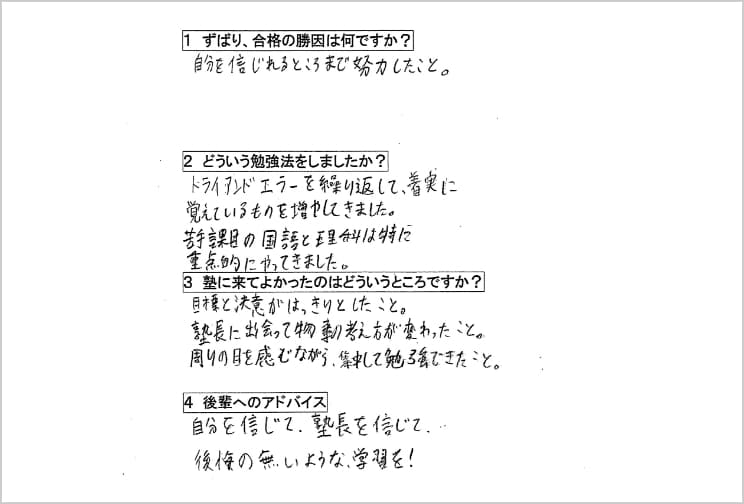 1 ずばり、合格の勝因は何ですか？
自分を信じれるところまで努力したこと。
2 どういう勉強法をしましたか？
トライアンドエラーを繰り返して、着実に
覚えているものを増やしてきました。
苦手課目の国語と理科は特に
重点的にやってきました。
3 塾に来てよかったのはどういうところですか？
目標と決意がはっきりとしたこと。
塾長に出会って物事の考え方が変わったこと。
周りの目を感じながら、集中して勉強できたこと。
4 後輩へのアドバイス
自分を信じて、塾長を信じて、
後悔の無いような、学習を！